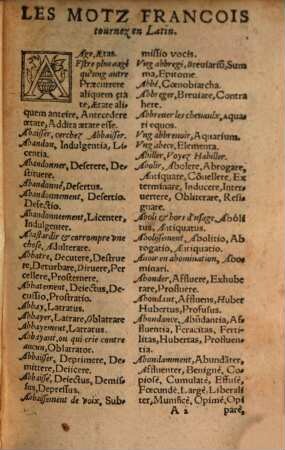 LES MOTZ FRANCOIS
tournez en Latin.
Age, Ætas.
Estre plus aagé
qu'vng autre
Præcurrere
aliquem æta-
te, Ætate ali-
quem anteire, Antecedere
ætate, Addita ætate esse.
Abaisser, cerchez Abbaisser.
Abandon, Indulgentia, Li-
centia.
Abandonner, Deserere, De-
stituere.
Abandonné, Desertus.
Abandonnement, Desertio.
Defectio.
Abandonneement, Licenter,
Indulgenter.
Abastardir & corrompre vne
chose, Adulterare.
Abbatre, Decutere, Destrue
re, Deturbare, Diruere, Per
cellere, Prosternere.
Abbatement, Deiectus, De-
cussio, Prostratio.
Abbay, Latratus.
Abbayer, Latrare, Oblatrare
Abbayement, Latratus.
Abbayant, ou qui crie contre
aucun, Oblatrator.
Abbaisser, Deprimere, De-
mittere, Deiicere.
Abbaissé, Deiectus, Demis-
sus, Depressus.
Abbaissement de voix, Sub-
missio vocis.
Vng abbregé, Breuiarium, Sum
ma, Epitome.
Abbé, Cœnobiarcha.
Abbreger, Breuiare, Contra
here.
Abbreuer les cheuaulx, aquari
equos.
Vng abbreuoir, Aquarium.
Vng abece, Elementa.
Abiller, Voyez Habiller.
Abolir, Abolere, Abrogare,
Antiquare, Côuellere, Ex
terminare, Inducere, Inter
uertere, Obliterare, Resi-
gnare.
Aboli & hors d'vsage, Abolî
tus, Antiquatus.
Abolissement, Abolitio, Ab
rogatio, Antiquatio.
Auoir en abomination, Abomi-
nari.
Abonder, Affluere, Exhube
rare, Profluere.
Abondant, Affluens, Huber
Hubertus, Profusus.
Abondance, Abûdantia, Af-
fluentia, Feracitas, Ferti-
litas, Hubertas, Profluen-
tia.
Abondamment, Abundâter,
Affluenter, Benignè, Co-
piosè, Cumulatè, Effusè,
Fœcundè, Largè, Liberali-
ter, Munificè, Opimè, Opi
A 2 parè,